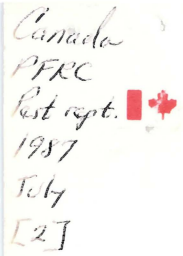 Canada
PFRC
Pest rept.
1987
July
[2]